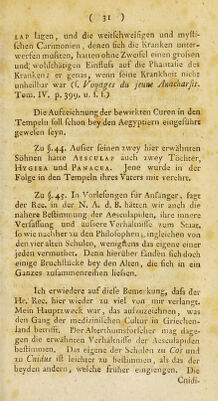 ( 31 )
LAP lagen, und die weitschweifigen und mysti-
schen Carimonien, denen sich die Kranken unter-
werfen mußten, hatten ohne Zweifel einen großen
und wohlthätigen Einfluß auf die Phantasie des
Kranken; er genas, wenn seine Krankheit nicht
unheilbar war (s. Voyages du jeune Anacharsis.
Tom. IV. p. 399. u. f. f.)
Die Aufzeichnung der bewirkten Curen in den
Tempeln soll schon bey den Aegyptiern eingeführt
gewesen seyn.
Zu §. 44. Außer seinen zwey hier erwähnten
Söhnen hatte AESCULAP auch zwey Töchter,
HYGIEA und PANACEA. Jene wurde in der
Folge in den Tempeln ihres Vaters mit verehrt.
Zu §. 45. In Vorlesungen für Anfänger, sagt
der Rec. in der N. A. d. B. hätten wir auch die
nähere Bestimmung der Aesculapiden, ihre innere
Verfassung und äußere Verhältnisse zum Staat,
so wie nachher zu den Philosophen, ingleichen von
den vier alten Schulen, wenigstens das eigene einer
jeden vermuthet. Denn hierüber fänden sich doch
einige Bruchstücke bey den Alten, die sich in ein
Ganzes zusammenreihen liesen.
Ich erwiedere auf diese Bemerkung, daß der
Hr. Rec. hier wieder zu viel von mir verlangt.
Mein Hauptzweck war, das aufzuzeichnen, was
den Gang der medizinischen Cultur in Griechen-
land betrifft. Der Alterthumsforscher mag dage-
gen die erwähnten Verhältnisse der Aesculapiden
bestimmen. Das eigene der Schulen zu Cos und
zu Cnidus ist leichter zu bestimmen, als das der
beyden andern, welche früher eingiengen. Die
Cnidi-